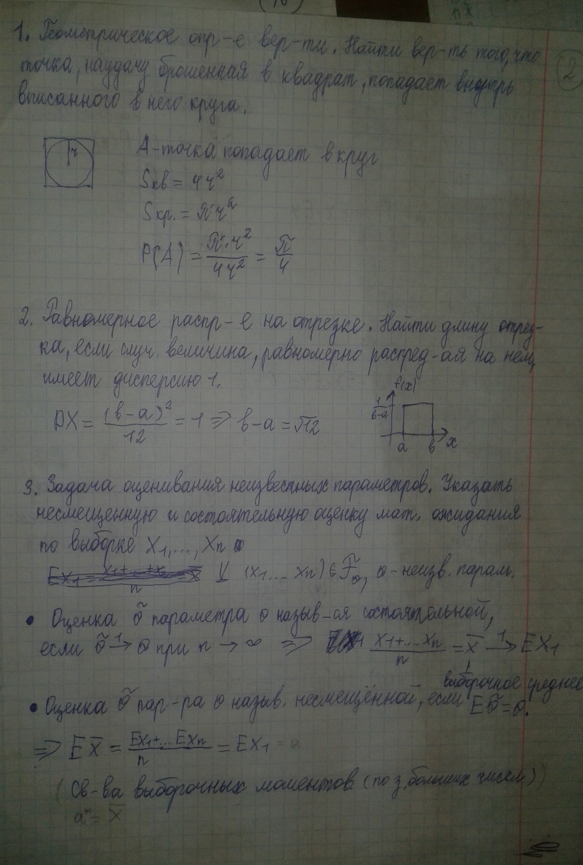 1. Геометрическое опр-е вер-ти. Найти вер-ть того, что
точка, наудачу брошенная в квадрат, попадает внутрь
вписанного в него круга.
2
r
A-точка попадает в круг
Sкв = 4r²
Sкр. = πr²
P(A) = π·r²/4r² = π/4
2. Равномерное распр-е на отрезке. Найти длину отрез-
ка, если случ величина, равномерно распред-ая на нем,
имеет дисперсию 1.
DX = (b-a)²/12 = 1 ⇒ b-a = √12
f(x)
1/b-a
a b x
3. Задача оценивания неизвестных параметров. Указать
несмещенную и состоятельную оценку мат. ожидания
по выборке X1,..., Xn
(x1... xn) ∈ Fθ, θ-неизв. парам.
• Оценка θ̃ параметра θ назыв-ая состоятельной,
если θ̃ → θ при n → ∞ ⇒ x1+...xn/n = x̄ → EX1
выборочное среднее
• Оценка θ̃ пар-ра θ назыв. несмещённой, если Eθ̃=θ.
⇒ Ex̄ = Ex1+...Exn/n = EX1 = a
(Св-ва выборочных моментов (по з. больших чисел))
a* = x̄